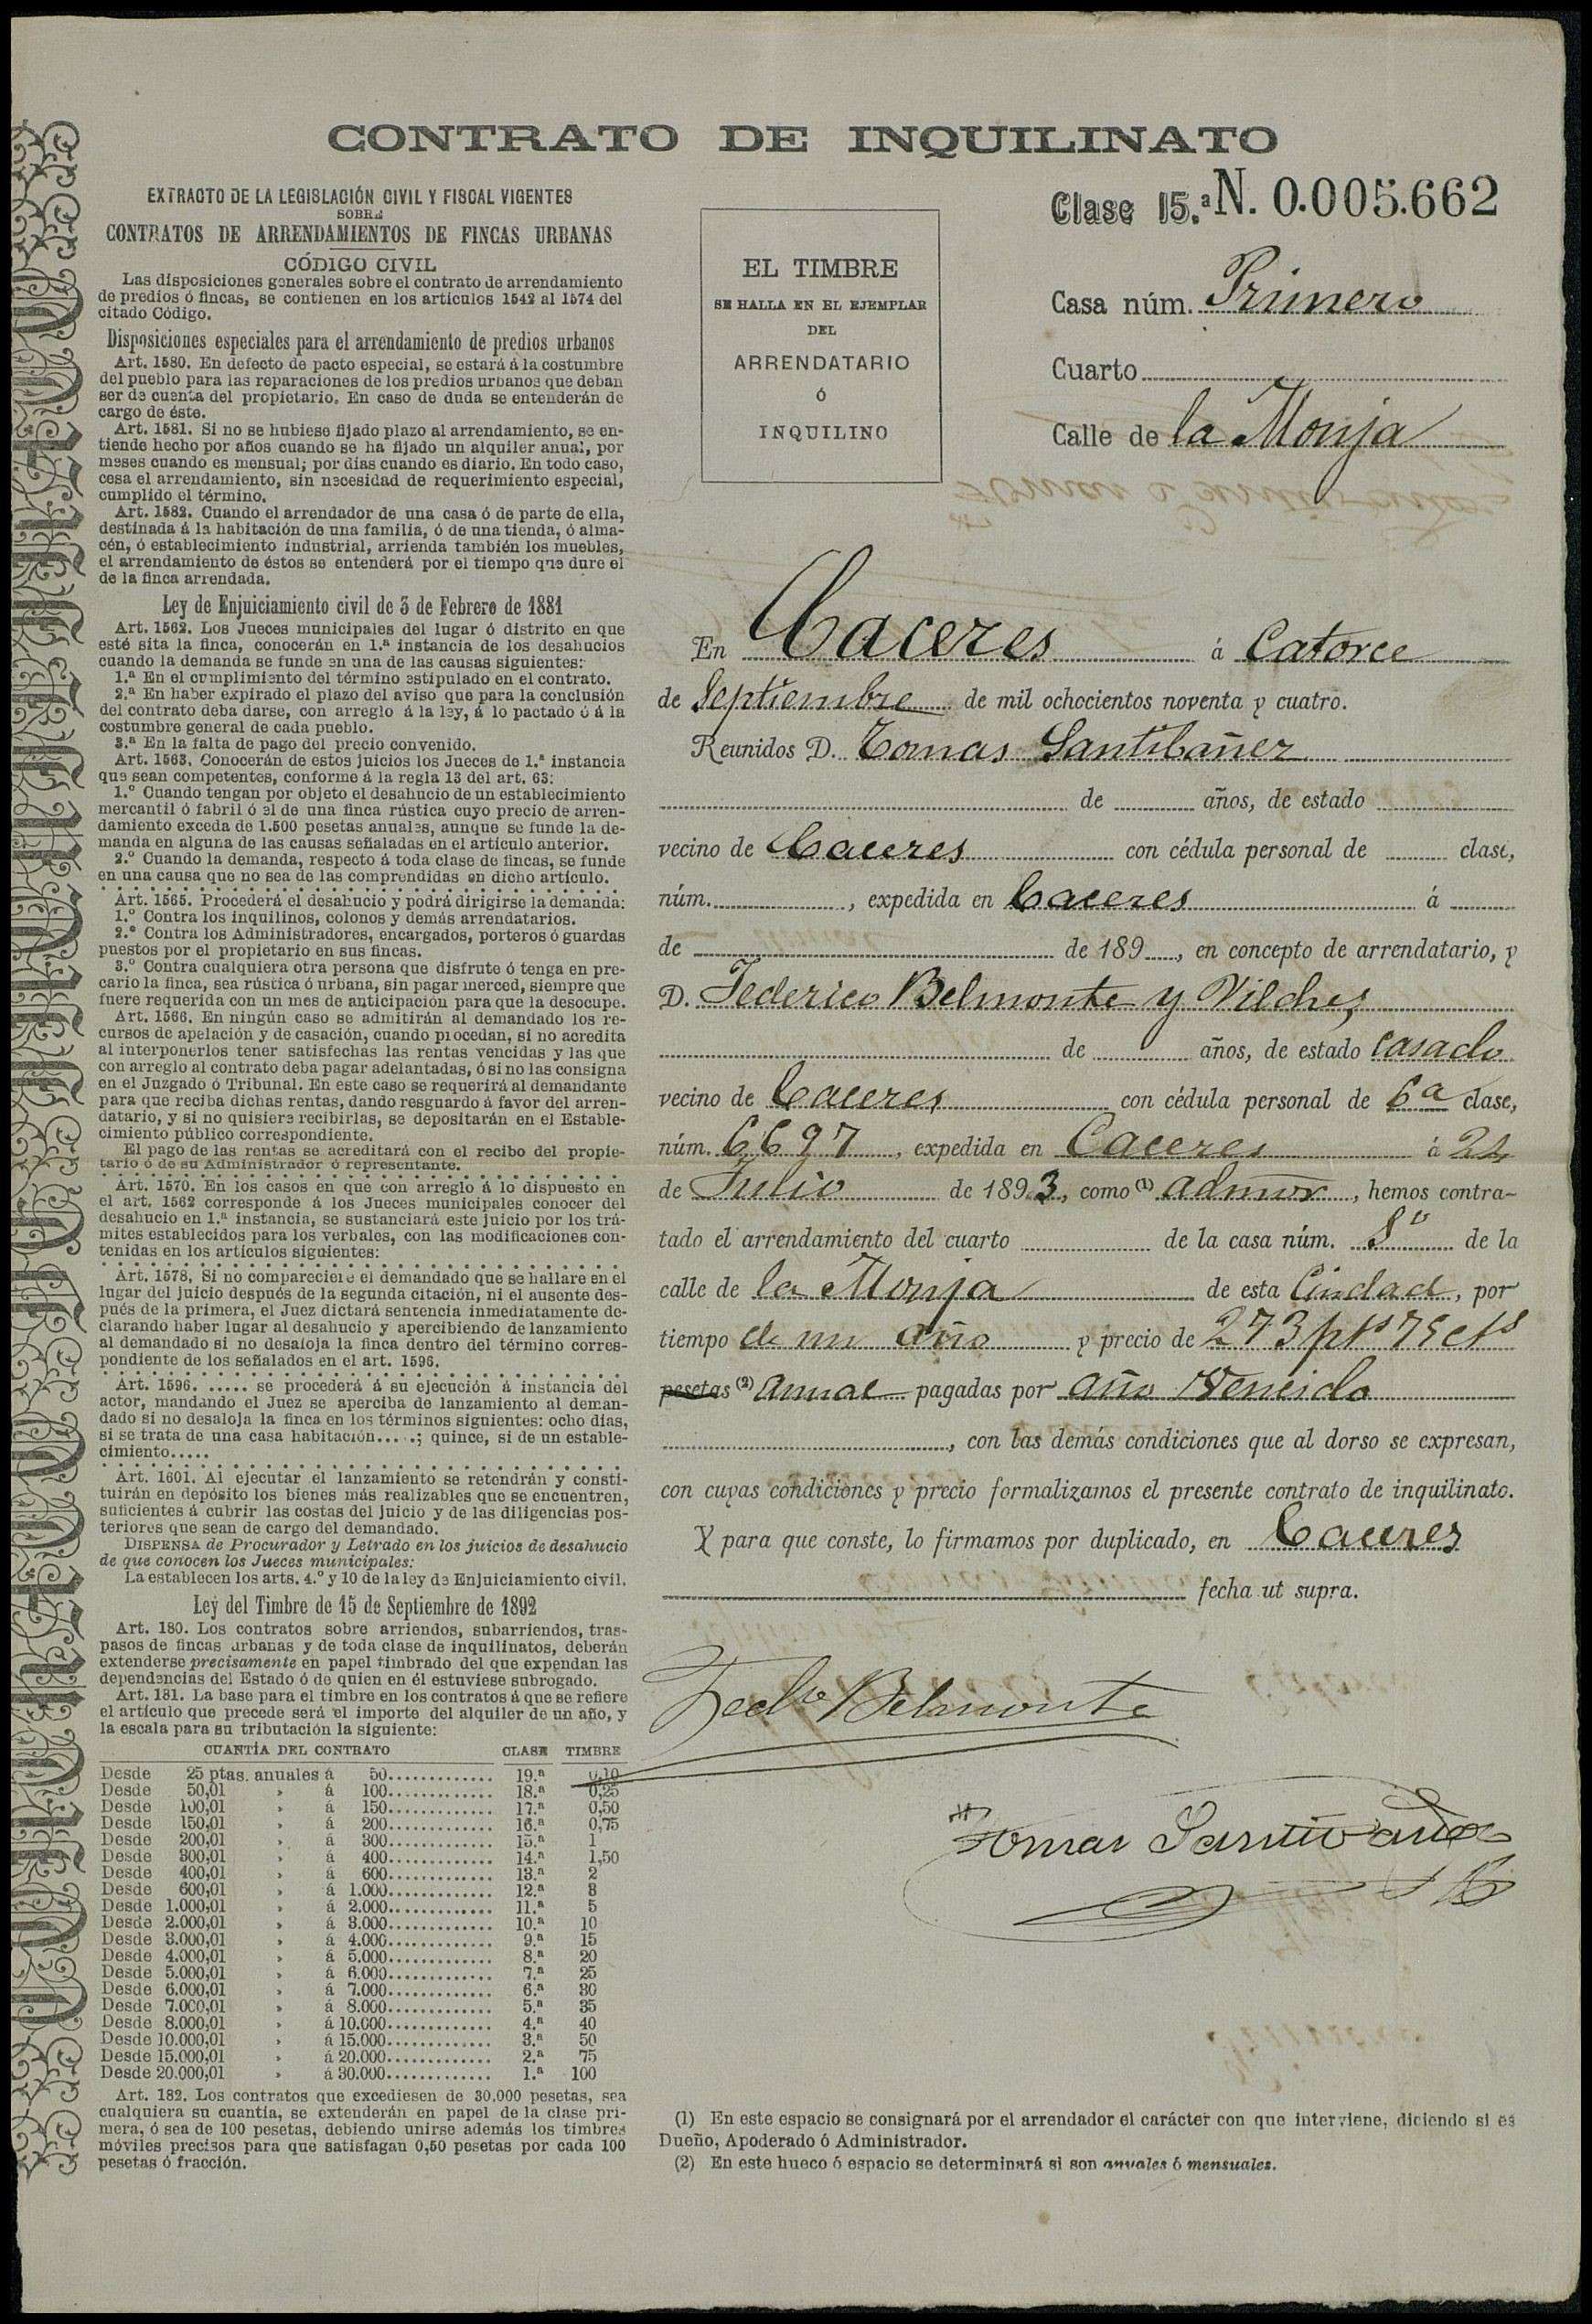 CONTRATO DE INQUILINATO
EXTRACTO DE LA LEGISLACIÓN CIVIL Y FISCAL VIGENTES
SOBRE
CONTRATOS DE ARRENDAMIENTOS DE FINCAS URBANAS
CÓDIGO CIVIL
Las disposiciones generales sobre el contrato de arrendamiento
de predios ó fincas, se contienen en los artículos 1542 al 1574 del
citado Código.
Disposiciones especiales para el arrendamiento de predios urbanos
Art. 1580. En defecto de pacto especial, se estará á la costumbre
del pueblo para las reparaciones de los predios urbanos que deban
ser de cuenta del propietario. En caso de duda se entenderán de
cargo de éste.
Art. 1581. Si no se hubiese fijado plazo al arrendamiento, se en-
tiende hecho por años cuando se ha fijado un alquiler anual, por
meses cuando es mensual; por días cuando es diario. En todo caso,
cesa el arrendamiento, sin necesidad de requerimiento especial,
cumplido el término.
Art. 1582. Cuando el arrendador de una casa ó de parte de ella,
destinada á la habitación de una familia, ó de una tienda, ó alma-
cén, ó establecimiento industrial, arrienda también los muebles,
el arrendamiento de éstos se entenderá por el tiempo que dure el
de la finca arrendada.
Ley de Enjuiciamiento civil de 3 de Febrero de 1881
Art. 1562. Los Jueces municipales del lugar ó distrito en que
esté sita la finca, conocerán en 1.ª instancia de los desahucios
cuando la demanda se funde en una de las causas siguientes:
1.ª En el cumplimiento del término estipulado en el contrato.
2.ª En haber expirado el plazo del aviso que para la conclusión
del contrato deba darse, con arreglo á la ley, á lo pactado ó á la
costumbre general de cada pueblo.
3.ª En la falta de pago del precio convenido.
Art. 1563. Conocerán de estos juicios los Jueces de 1.ª instancia
que sean competentes, conforme á la regla 13 del art. 63:
1.º Cuando tengan por objeto el desahucio de un establecimiento
mercantil ó fabril ó el de una finca rústica cuyo precio de arren-
damiento exceda de 1.500 pesetas anuales, aunque se funde la de-
manda en alguna de las causas señaladas en el artículo anterior.
2.º Cuando la demanda, respecto á toda clase de fincas, se funde
en una causa que no sea de las comprendidas en dicho artículo.
Art. 1565. Procederá el desahucio y podrá dirigirse la demanda:
1.º Contra los inquilinos, colonos y demás arrendatarios.
2.º Contra los Administradores, encargados, porteros ó guardas
puestos por el propietario en sus fincas.
3.º Contra cualquiera otra persona que disfrute ó tenga en pre-
cario la finca, sea rústica ó urbana, sin pagar merced, siempre que
fuere requerida con un mes de anticipación para que la desocupe.
Art. 1566. En ningún caso se admitirán al demandado los re-
cursos de apelación y de casación, cuando procedan, si no acredita
al interponerlos tener satisfechas las rentas vencidas y las que
con arreglo al contrato deba pagar adelantadas, ó si no las consigna
en el Juzgado ó Tribunal. En este caso se requerirá al demandante
para que reciba dichas rentas, dando resguardo á favor del arren-
datario, y si no quisiere recibirlas, se depositarán en el Estable-
cimiento público correspondiente.
El pago de las rentas se acreditará con el recibo del propie-
tario ó de su Administrador ó representante.
Art. 1570. En los casos en que con arreglo á lo dispuesto en
el art. 1562 corresponde á los Jueces municipales conocer del
desahucio en 1.ª instancia, se sustanciará este juicio por los trá-
mites establecidos para los verbales, con las modificaciones con-
tenidas en los artículos siguientes:
Art. 1578. Si no compareciere el demandado que se hallare en el
lugar del juicio después de la segunda citación, ni el ausente des-
pués de la primera, el Juez dictará sentencia inmediatamente de-
clarando haber lugar al desahucio y apercibiendo de lanzamiento
al demandado si no desaloja la finca dentro del término corres-
pondiente de los señalados en el art. 1596.
Art. 1596. ..... se procederá á su ejecución á instancia del
actor, mandando el Juez se aperciba de lanzamiento al deman-
dado si no desaloja la finca en los términos siguientes: ocho días,
si se trata de una casa habitación.....; quince, si de un estable-
cimiento.....
Art. 1601. Al ejecutar el lanzamiento se retendrán y consti-
tuirán en depósito los bienes más realizables que se encuentren,
suficientes á cubrir las costas del juicio y de las diligencias pos-
teriores que sean de cargo del demandado.
DISPENSA de Procurador y Letrado en los juicios de desahucio
de que conocen los Jueces municipales:
La establecen los arts. 4.º y 10 de la ley de Enjuiciamiento civil.
Ley del Timbre de 15 de Septiembre de 1892
Art. 180. Los contratos sobre arriendos, subarriendos, tras-
pasos de fincas urbanas y de toda clase de inquilinatos, deberán
extenderse precisamente en papel timbrado del que expendan las
dependencias del Estado ó de quien en él estuviese subrogado.
Art. 181. La base para el timbre en los contratos á que se refiere
el artículo que precede será el importe del alquiler de un año, y
la escala para su tributación la siguiente:
CUANTÍA DEL CONTRATO CLASE TIMBRE
Desde 25 ptas. anuales á 50............. 19.ª 0,10
Desde 50,01 » á 100............. 18.ª 0,25
Desde 100,01 » á 150............. 17.ª 0,50
Desde 150,01 » á 200............. 16.ª 0,75
Desde 200,01 » á 300............. 15.ª 1
Desde 300,01 » á 400............. 14.ª 1,50
Desde 400,01 » á 600............. 13.ª 2
Desde 600,01 » á 1.000............. 12.ª 3
Desde 1.000,01 » á 2.000............. 11.ª 5
Desde 2.000,01 » á 3.000............. 10.ª 10
Desde 3.000,01 » á 4.000............. 9.ª 15
Desde 4.000,01 » á 5.000............. 8.ª 20
Desde 5.000,01 » á 6.000............. 7.ª 25
Desde 6.000,01 » á 7.000............. 6.ª 30
Desde 7.000,01 » á 8.000............. 5.ª 35
Desde 8.000,01 » á 10.000............. 4.ª 40
Desde 10.000,01 » á 15.000............. 3.ª 50
Desde 15.000,01 » á 20.000............. 2.ª 75
Desde 20.000,01 » á 30.000............. 1.ª 100
Art. 182. Los contratos que excediesen de 30.000 pesetas, sea
cualquiera su cuantía, se extenderán en papel de la clase pri-
mera, ó sea de 100 pesetas, debiendo unirse además los timbres
móviles precisos para que satisfagan 0,50 pesetas por cada 100
pesetas ó fracción.
EL TIMBRE
SE HALLA EN EL EJEMPLAR
DEL
ARRENDATARIO
Ó
INQUILINO
Clase 15.ª N. 0.005.662
Casa núm. Primero
Cuarto
Calle de la Monja
En Caceres á Catorce
de Septiembre de mil ochocientos noventa y cuatro.
Reunidos D. Tomas Santibañez
de años, de estado
vecino de Caceres con cédula personal de clase,
núm. , expedida en Caceres á
de de 189 , en concepto de arrendatario, y
D. Federico Belmonte y Vilches
de años, de estado casado
vecino de Caceres con cédula personal de 6ª clase,
núm. 6697, expedida en Caceres á 24
de Julio de 1893, como (1) admor, hemos contra-
tado el arrendamiento del cuarto de la casa núm. de la
calle de la Monja de esta Ciudad, por
tiempo de un año y precio de 273 pts 75 cts
pesetas (2) anual pagadas por año Vencido
, con las demás condiciones que al dorso se expresan,
con cuyas condiciones y precio formalizamos el presente contrato de inquilinato.
Y para que conste, lo firmamos por duplicado, en Caceres
fecha ut supra.
Fedco Belmonte
Tomas Santivañez
(1) En este espacio se consignará por el arrendador el carácter con que interviene, diciendo si es
Dueño, Apoderado ó Administrador.
(2) En este hueco ó espacio se determinará si son anuales ó mensuales.